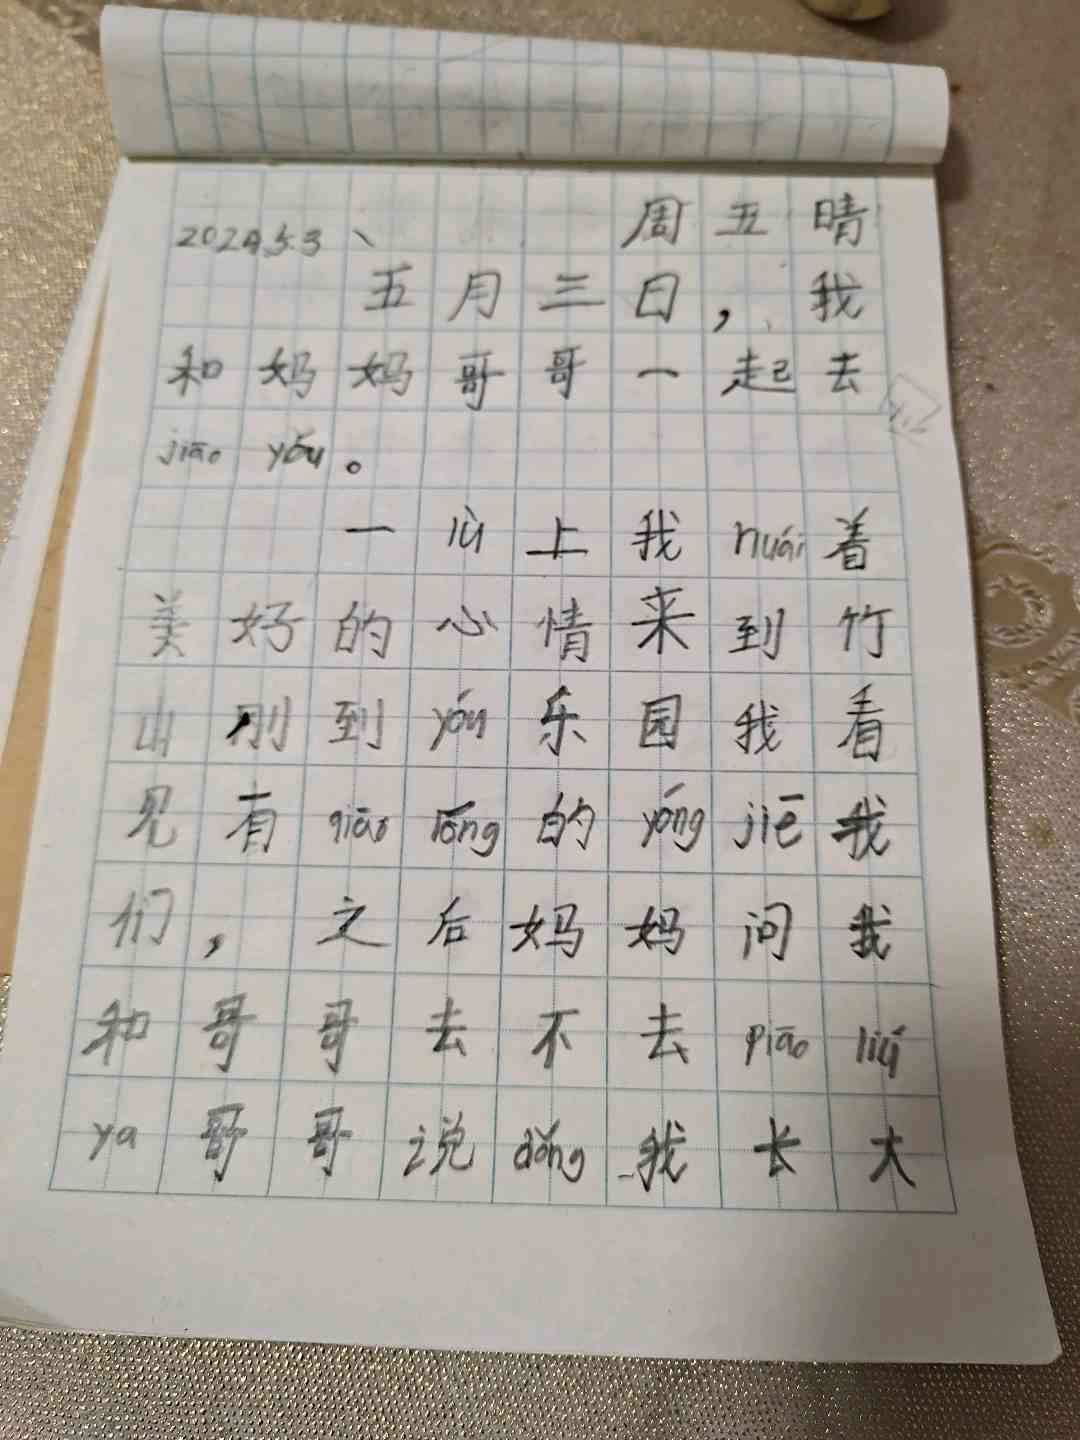 2024.5.3、 周五晴
五月三日，我
和妈妈哥哥一起去
jiāo yóu。
一lù上我huái着
美好的心情来到竹
山刚到yóu乐园我看
见有qiāo lōng的yóng jiē我
们，之后妈妈问我
和哥哥去不去piāo liú
ya哥哥说děng我长大